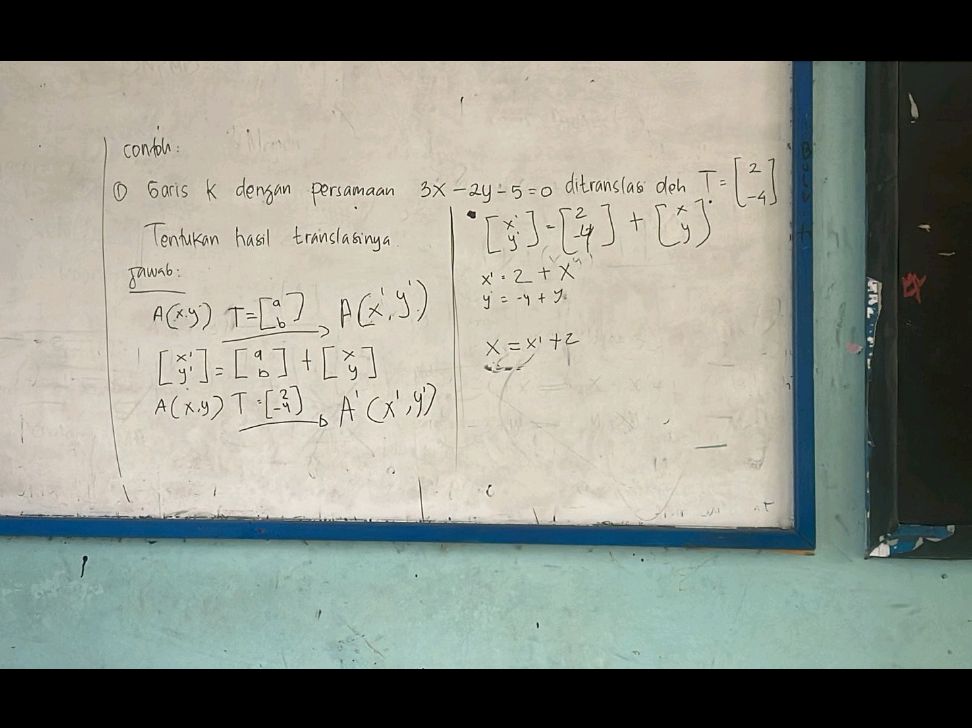 contoh:
① Garis k dengan persamaan 3x - 2y - 5 = 0 ditranslasi oleh T = [2 -4]
Tentukan hasil translasinya.
Jawab:
A(x.y) T = [a b] → A(x', y')
[x' y'] = [a b] + [x y]
A(x,y) T = [2 -4] → A'(x', y')
[x' y'] = [2 -4] + [x y]
x' = 2 + x
y' = -4 + y
x = x' + 2